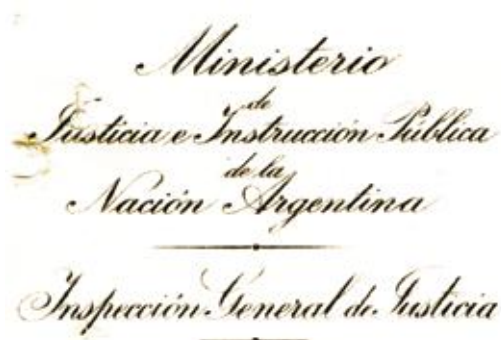 Ministerio
de
Justicia e Instrucción Pública
de la
Nación Argentina
Inspección General de Justicia